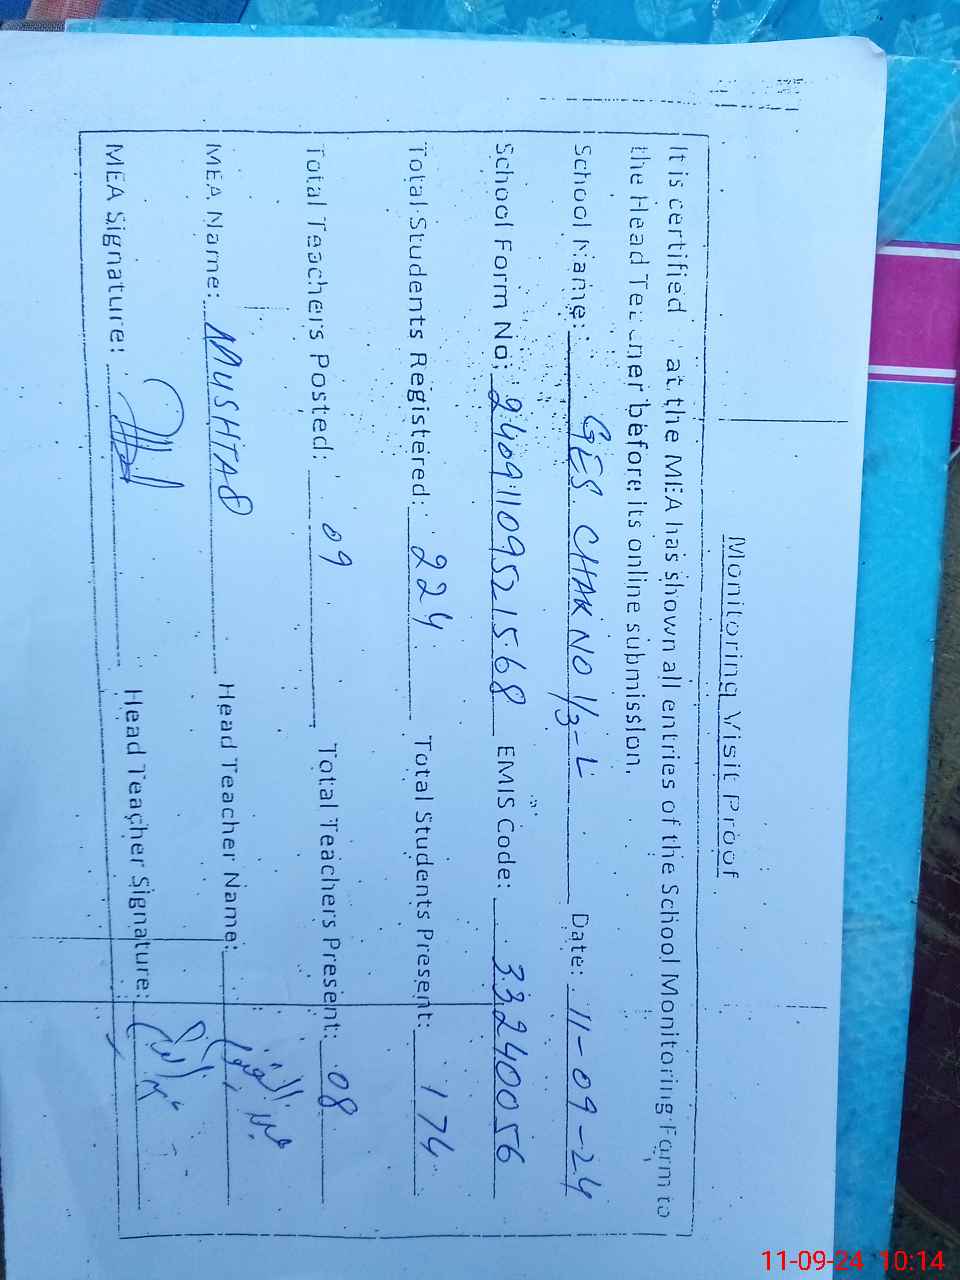 Monitoring Visit Proof
It is certified at the MEA has shown all entries of the School Monitoring Form to
the Head Teacher before its online submission.
School Name: GES CHAK NO 1/3-L Date: 11-09-24
School Form No: 24091109521568 EMIS Code: 33240056
Total Students Registered: 224 Total Students Present: 174
Total Teachers Posted: 09 Total Teachers Present: 08
MEA Name: MUSHTAQ Head Teacher Name:
MEA Signature: Head Teacher Signature:
11-09-24 10:14